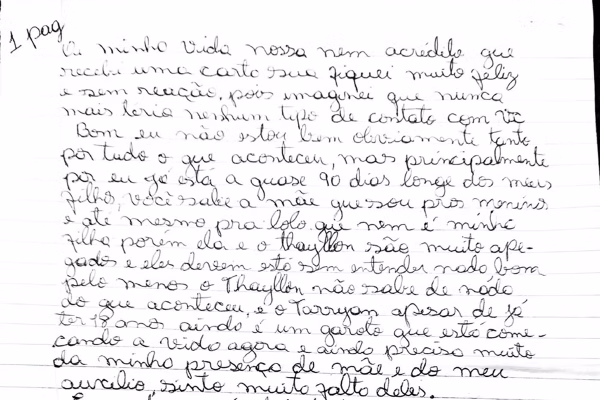 1 pag
Oi minha vida nossa nem acredito que
recebi uma carta sua fiquei muito feliz
e sem reação, pois imaginei que nunca
mais teria nenhum tipo de contato com vc
Bom eu não estou bem obviamente tanto
por tudo o que aconteceu, mas principalmente
por eu já está a quase 90 dias longe dos meus
filho, você sabe a mãe que sou pros meninos
e até mesmo pra lolo que nem é minha
filha porem ela e o Thayllon são muito ape-
gados e eles devem está sem entender nada bom
pelo menos o Thayllon não sabe de nada
do que aconteceu, e o Tarryan apesar de já
ter 18 anos ainda é um garoto que está come-
cando a vida agora e ainda precisa muito
da minha presença de mãe e do meu
auxcilio, sinto muito falta deles.